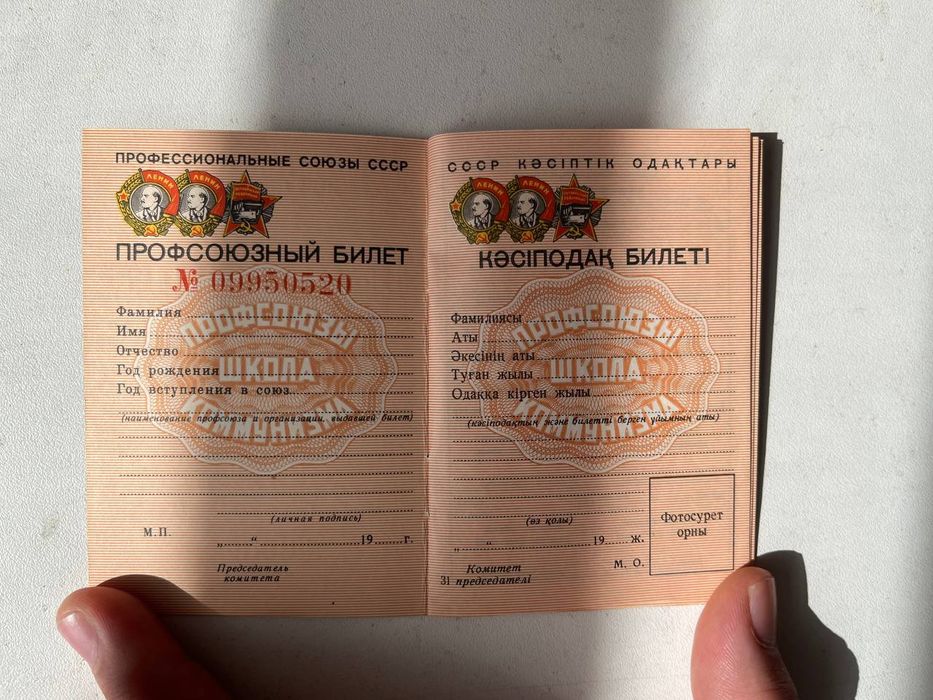 ПРОФЕССИОНАЛЬНЫЕ СОЮЗЫ СССР
ЛЕНИН
ЛЕНИН
ПРОФСОЮЗНЫЙ БИЛЕТ
№ 09950520
Фамилия
Имя
Отчество
Год рождения
Год вступления в союз
ПРОФСОЮЗЫ
ШКОЛА
КОММУНИЗМА
(наименование профсоюза и организации, выдавшей билет)
(личная подпись)
М.П.
„......“ 19......г.
Председатель
комитета
СССР КӘСІПТІК ОДАҚТАРЫ
ЛЕНИН
ЛЕНИН
КӘСІПОДАҚ БИЛЕТІ
Фамилиясы
Аты
Әкесінің аты
Туған жылы
Одаққа кірген жылы
ПРОФСОЮЗЫ
ШКОЛА
КОММУНИЗМА
(кәсіподақтың және билетті берген ұйымның аты)
(өз қолы)
„......“ 19......ж.
М. О.
Фотосурет
орны
Комитет
31 председателі